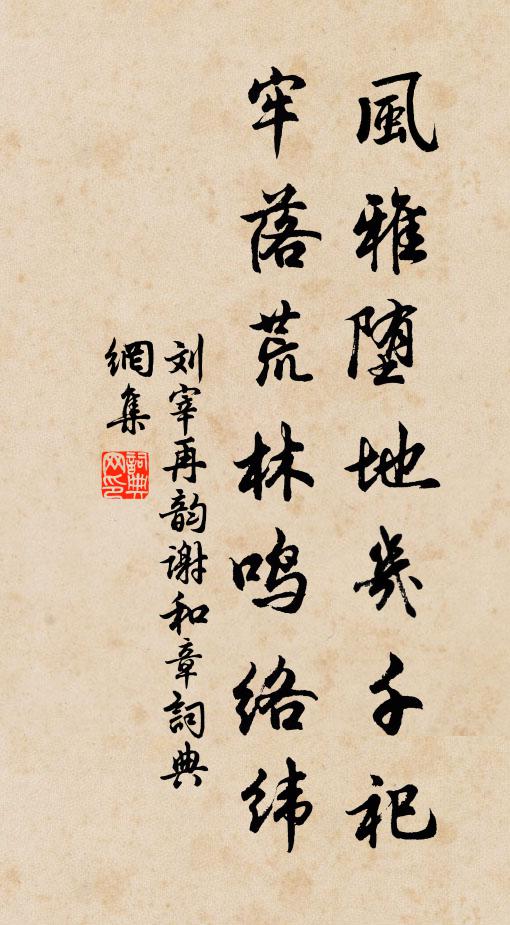 風雅堕地幾千祀
牢落荒林鳴絡緯
刘宰再韵谢和章詞典
網集
詞典
网印